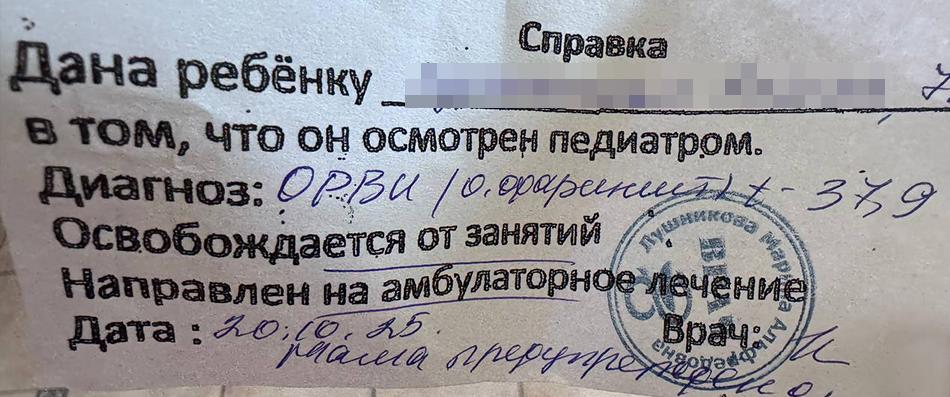 Справка
Дана ребёнку 7
в том, что он осмотрен педиатром.
Диагноз: ОРВИ (о. фарингит) t - 37,9
Освобождается от занятий
Направлен на амбулаторное лечение
Дата : 20.10.25. Врач:
мама предупреждена.
Лушникова Мария Альфредовна
ВРАЧ